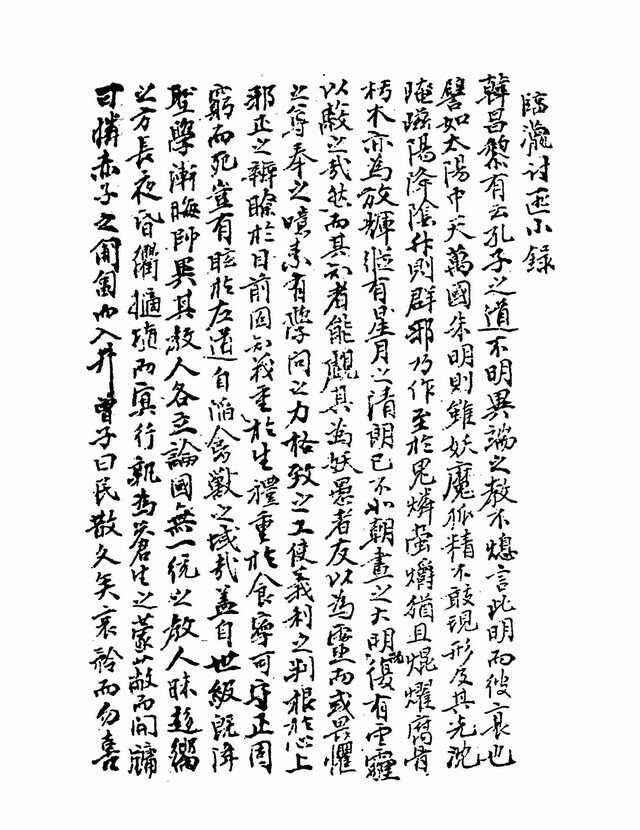 臨瀧討匪小錄
韓昌黎有云孔子之道不明異端之教不熄言此明而彼衰也
譬如太陽中天萬國朱明則雖妖魔狐精不敢現形及其光沈
掩蹤陽降陰升則群邪乃作至於鬼燐螢爝猶且焜燿腐骨
朽木亦為放輝縱有星月之清明已不如朝晝之大明況復有雲霾
以蔽之哉然而其知者能觀其為妖愚者反以為靈而或畏懼
之尊奉之噫素有學問之力格致之工使義利之判根於心上
邪正之辨瞭於目前固知義重於生禮重於食寧可守正固
窮而死豈有眩於左道自陷禽獸之域哉蓋自世級既降
聖學漸晦師異其教人各立論國無一統之教人昧趨嚮
之方長夜昏衢擿埴而冥行孰為蒼生之蒙蔽而開牖
可憐赤子之匍匐而入井曾子曰民散久矣哀矜而勿喜